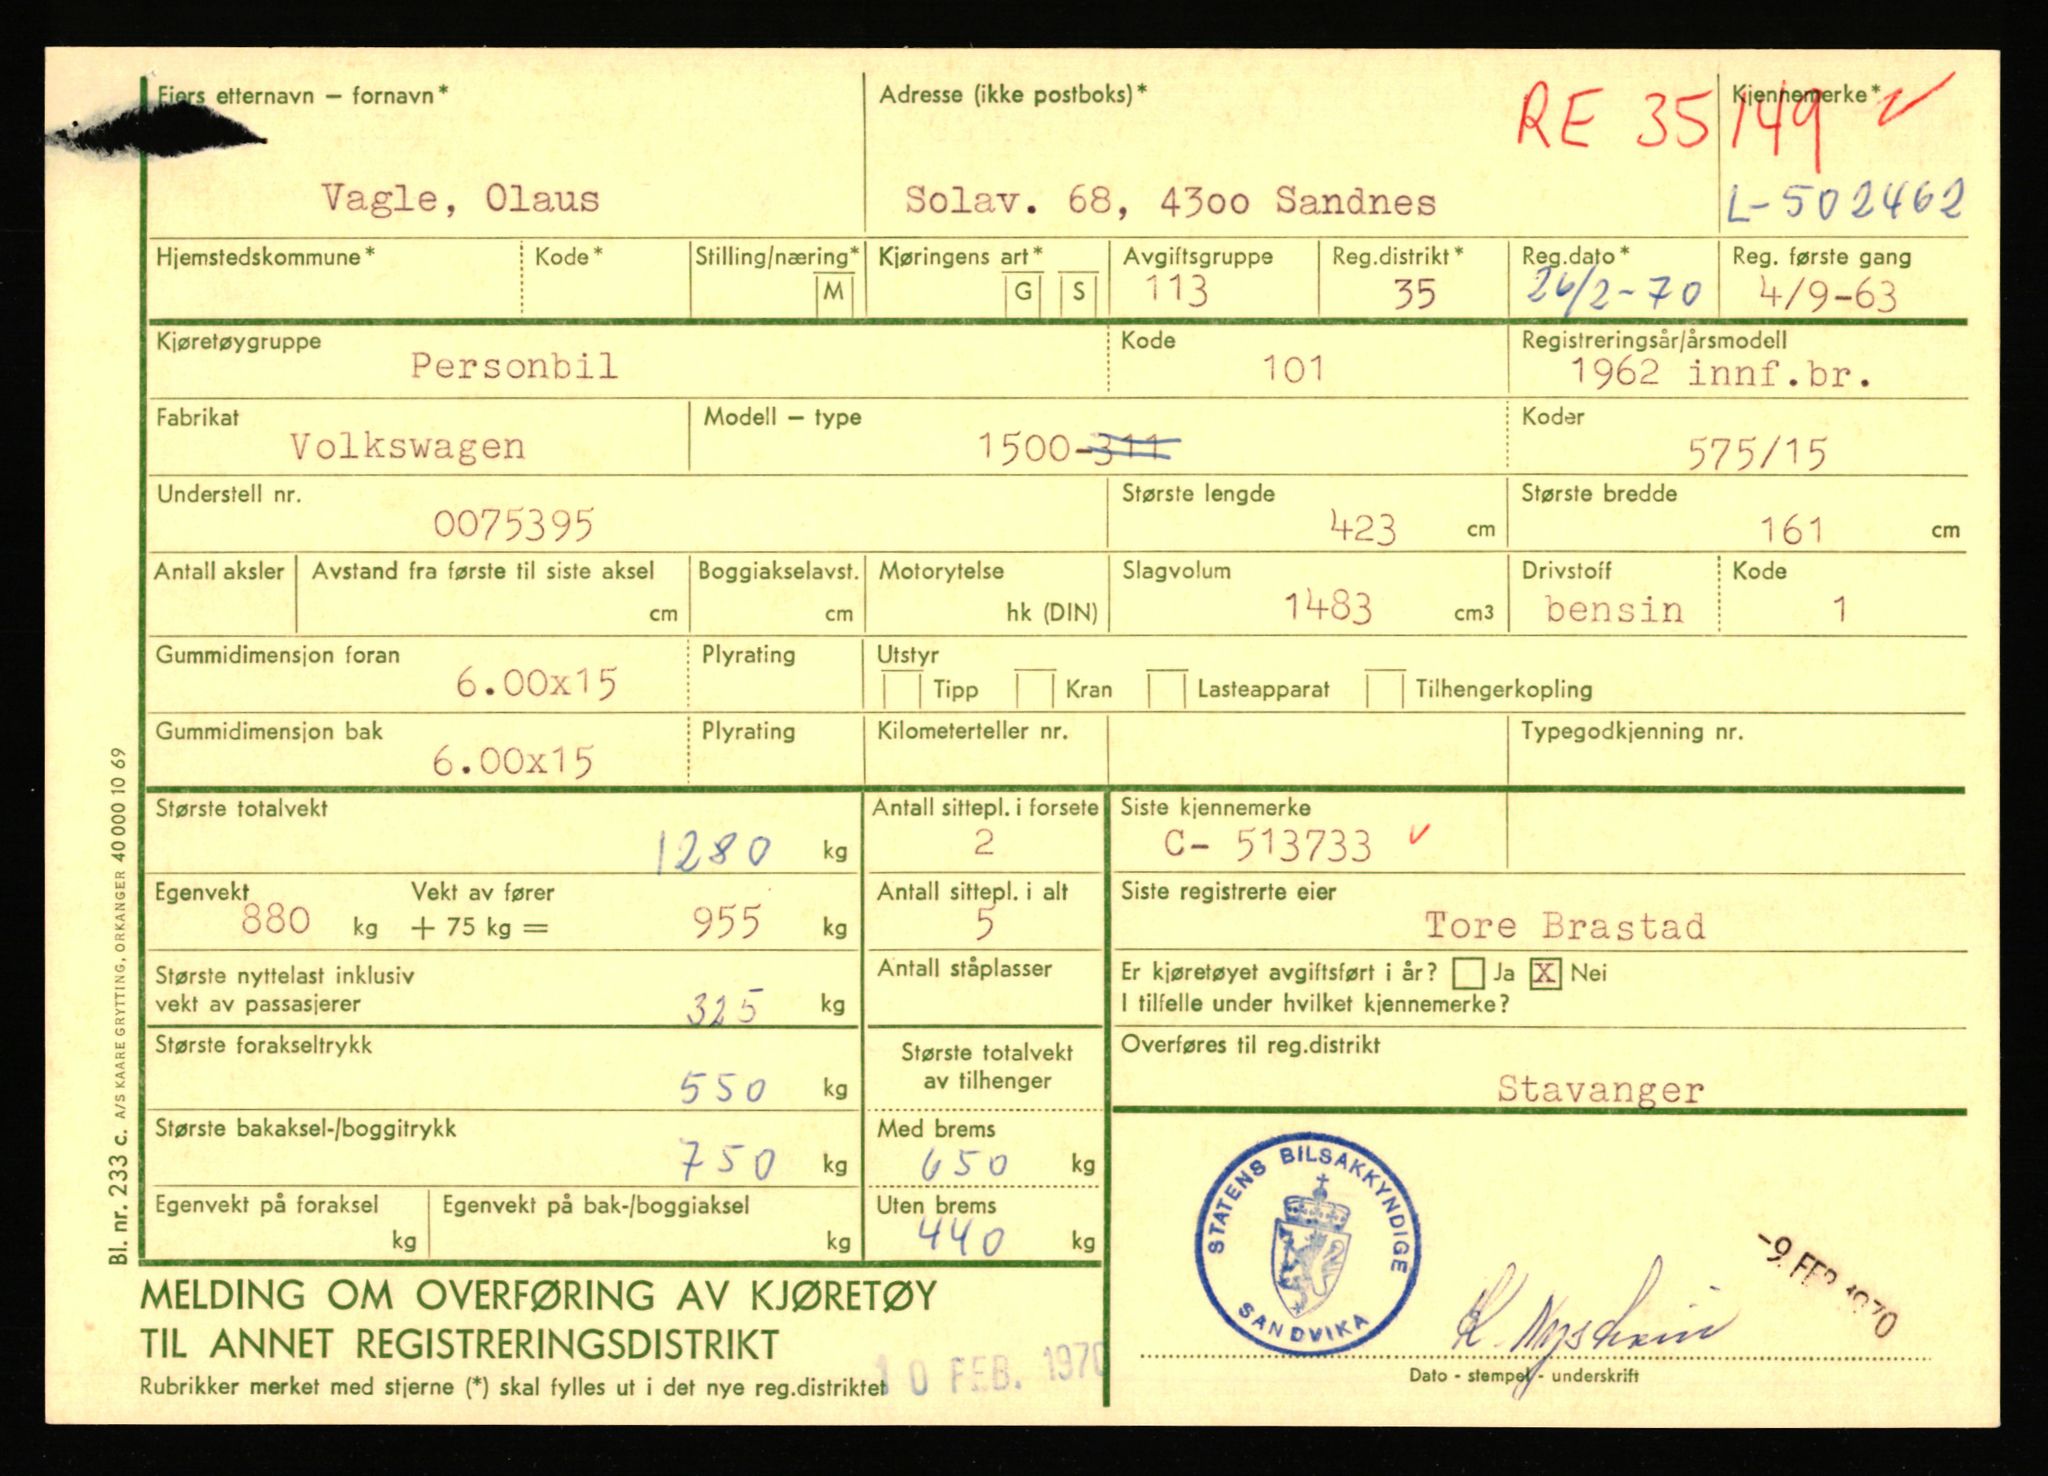 Eiers etternavn – fornavn*
Vagle, Olaus
Adresse (ikke postboks)*
Solav. 68, 4300 Sandnes
RE 35149
Kjennemerke*
L-502462
Hjemstedskommune*
Kode*
Stilling/næring*
M
Kjøringens art*
G S
Avgiftsgruppe
113
Reg.distrikt*
35
Reg.dato*
26/2-70
Reg. første gang
4/9-63
Kjøretøygruppe
Personbil
Kode
101
Registreringsår/årsmodell
1962 innf.br.
Fabrikat
Volkswagen
Modell – type
1500-311
Koder
575/15
Understell nr.
0075395
Største lengde
423 cm
Største bredde
161 cm
Antall aksler
Avstand fra første til siste aksel
cm
Boggiakselavst.
cm
Motorytelse
hk (DIN)
Slagvolum
1483 cm3
Drivstoff
bensin
Kode
1
Gummidimensjon foran
6.00x15
Plyrating
Utstyr
Tipp Kran Lasteapparat Tilhengerkopling
Gummidimensjon bak
6.00x15
Plyrating
Kilometerteller nr.
Typegodkjenning nr.
Største totalvekt
1280 kg
Antall sittepl. i forsete
2
Siste kjennemerke
C- 513733
Egenvekt
880 kg
Vekt av fører
+ 75 kg = 955 kg
Antall sittepl. i alt
5
Siste registrerte eier
Tore Brastad
Største nyttelast inklusiv
vekt av passasjerer
325 kg
Antall ståplasser
Er kjøretøyet avgiftsført i år? Ja X Nei
I tilfelle under hvilket kjennemerke?
Største forakseltrykk
550 kg
Største totalvekt
av tilhenger
Overføres til reg.distrikt
Stavanger
Største bakaksel-/boggitrykk
750 kg
Med brems
650 kg
Egenvekt på foraksel
kg
Egenvekt på bak-/boggiaksel
kg
Uten brems
440 kg
STATENS BILSAKKYNDIGE
SANDVIKA
-9. FEB 1970
MELDING OM OVERFØRING AV KJØRETØY
TIL ANNET REGISTRERINGSDISTRIKT
Rubrikker merket med stjerne (*) skal fylles ut i det nye reg.distriktet
10 FEB. 1970
Dato - stempel - underskrift
Bl. nr. 233 c. A/S KAARE GRYTTING, ORKANGER 40 000 10 69